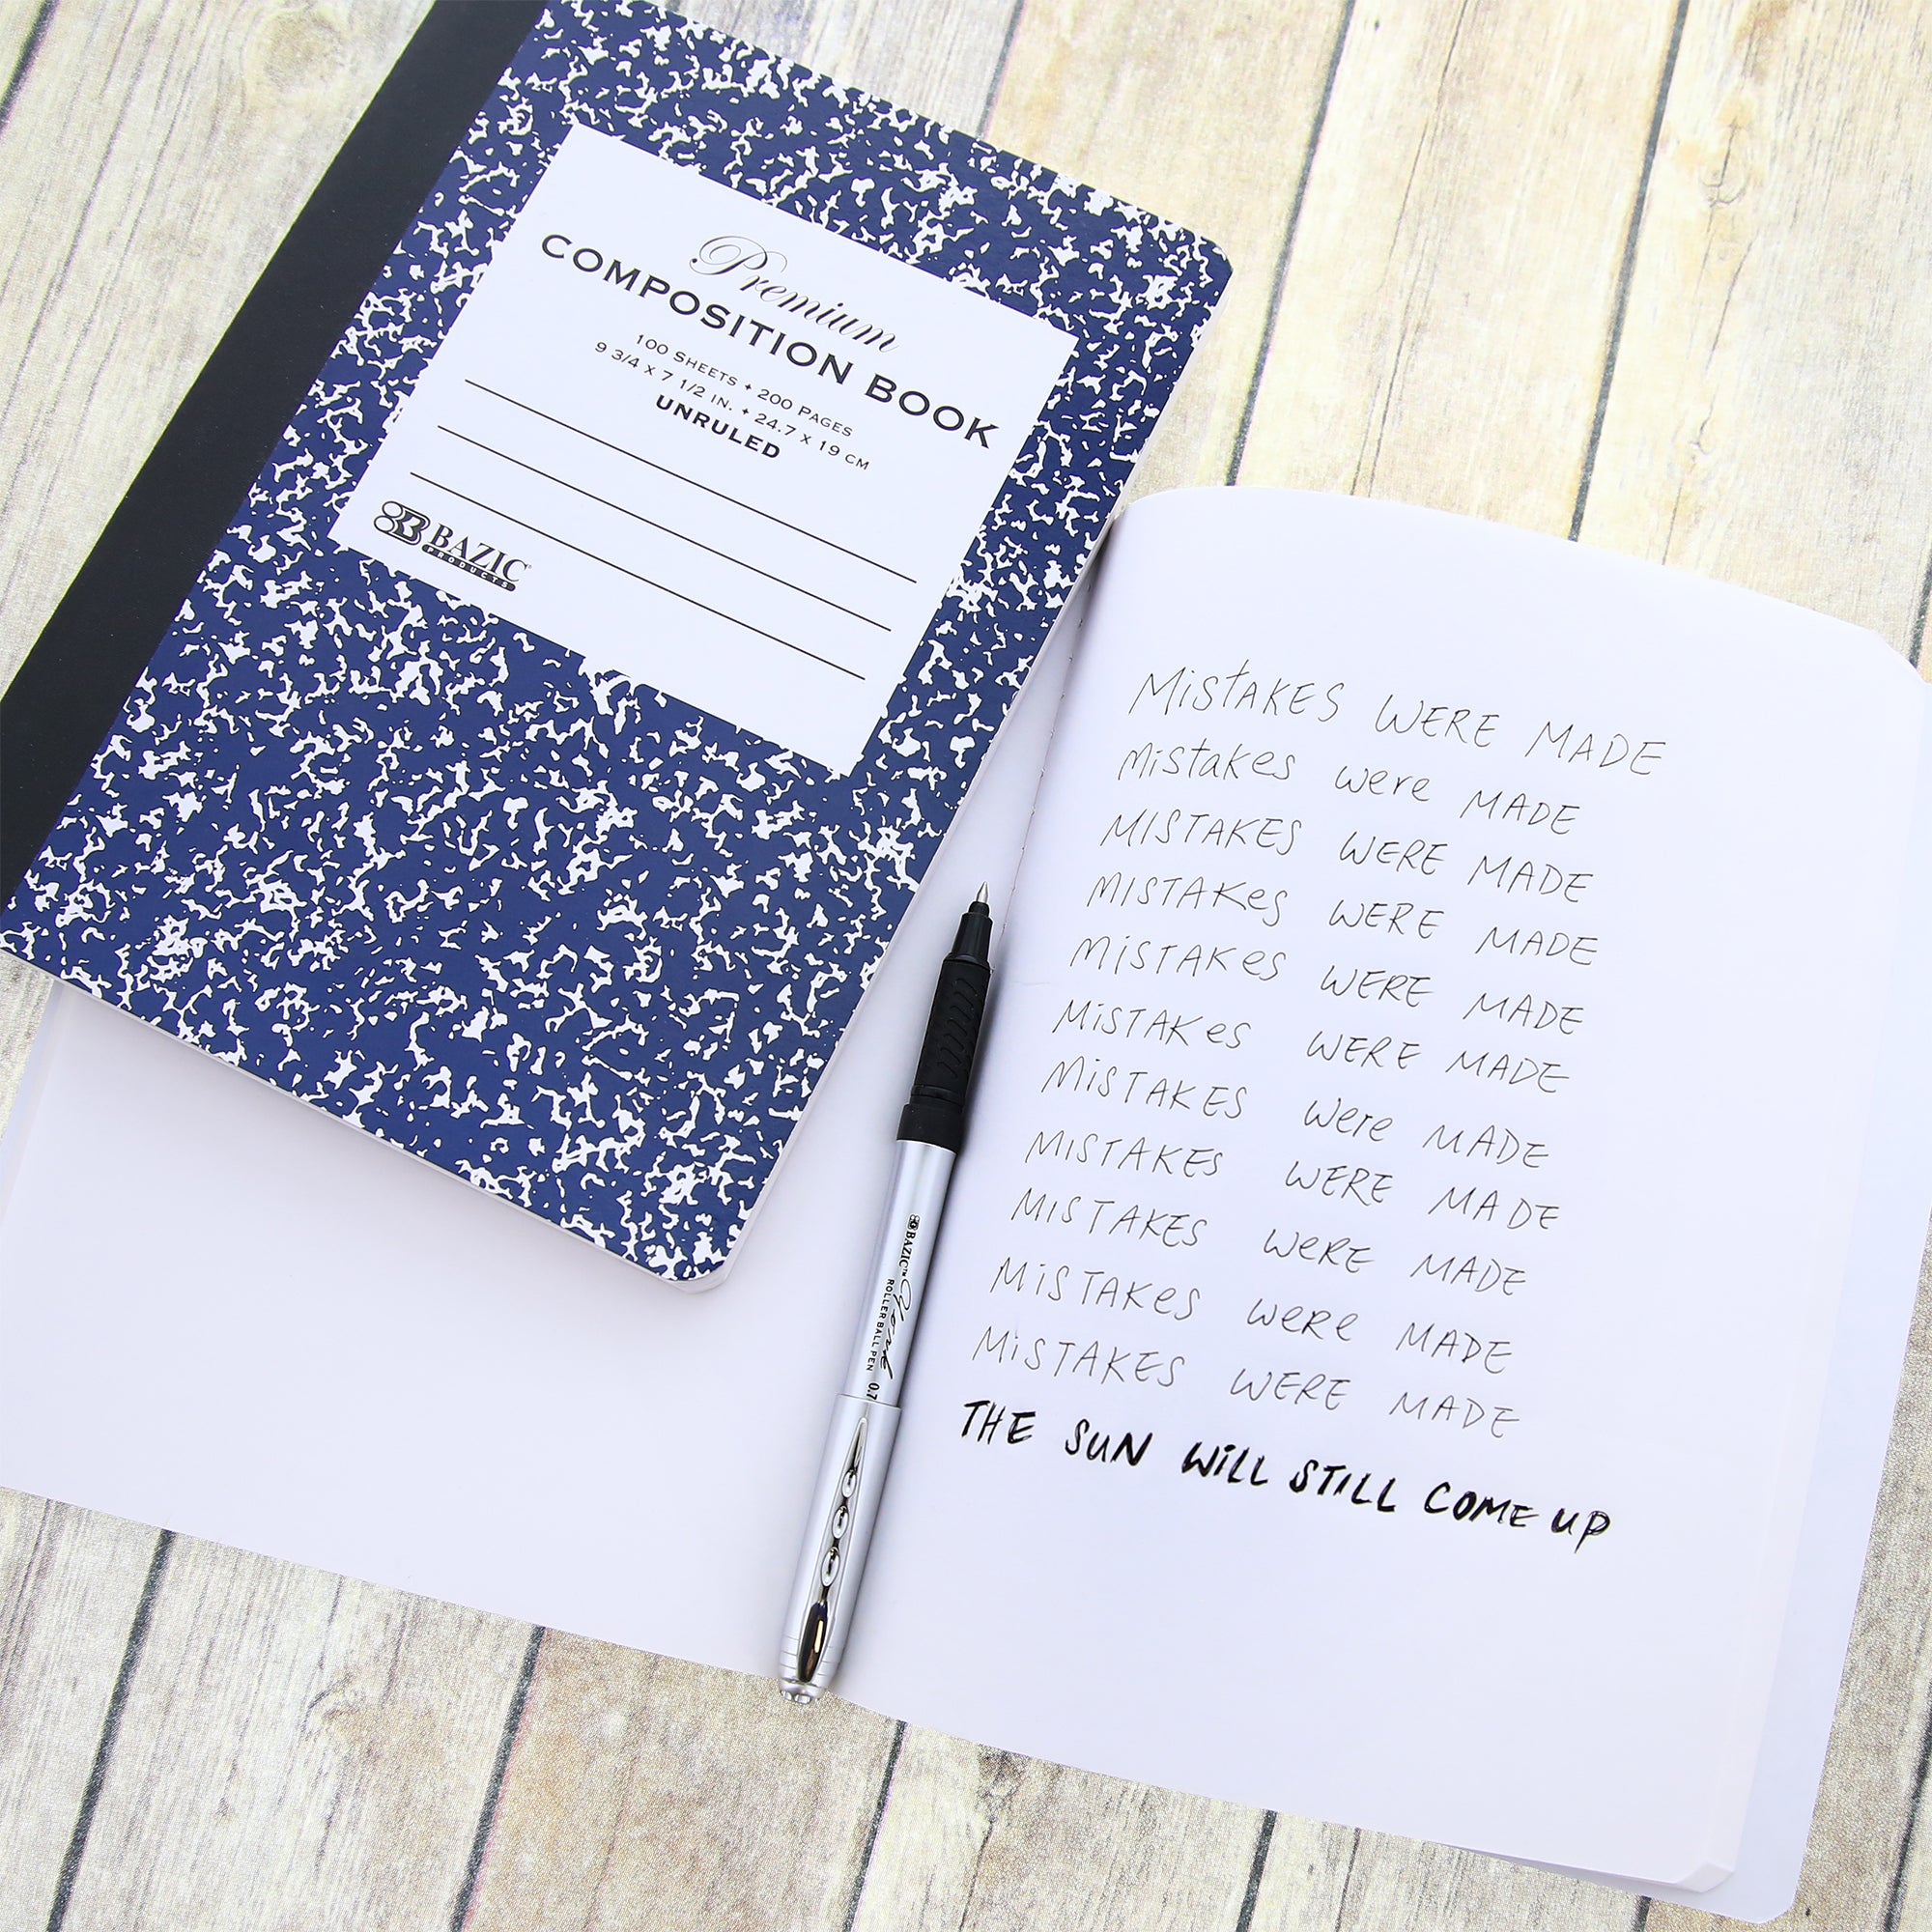 Premium
COMPOSITION BOOK
100 SHEETS • 200 PAGES
9 3/4 X 7 1/2 IN. • 24.7 X 19 CM
UNRULED
BAZIC
PRODUCTS
BAZIC™ York
ROLLER BALL PEN 0.7
MiStAKES WERE MADE
Mistakes were MADE
MISTAKES WERE MADE
MISTAKeS WERE MADE
MiSTAKeS WERE MADE
MiSTAKeS WERE MADE
MiSTAKES Were MADE
MISTAKES WERE MADE
MiSTAKES WeRE MADE
MiSTAKeS WeRe MADE
MiSTAKES WERE MADE
THE SUN WiLL STiLL COME UP